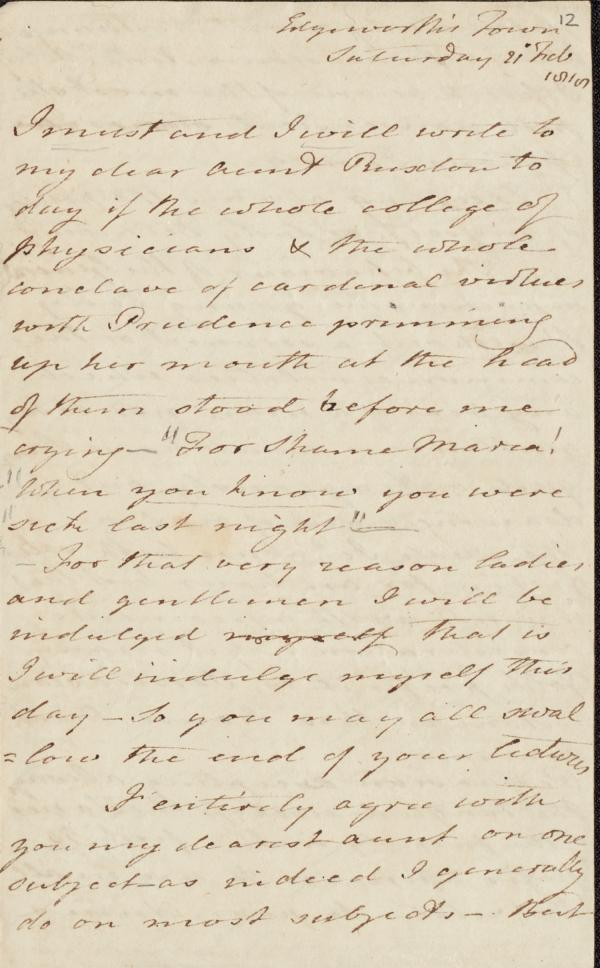 12
Edgeworth's Town
Saturday 21st Feb
I must and I will write to
my dear aunt Ruxton to
day if the whole college of
physicians & the whole
conclave of cardinal virtues
with Prudence primming
up her mouth at the head
of them stood before me
crying — "For Shame Maria!
"When you know you were
"sick last night" —
— For that very reason ladies
and gentlemen I will be
indulged myself that is
I will indulge myself this
day — So you may all swal
=low the end of your lectures
I entirely agree with
you my dearest aunt on one
subject as indeed I generally
do on most subjects — But